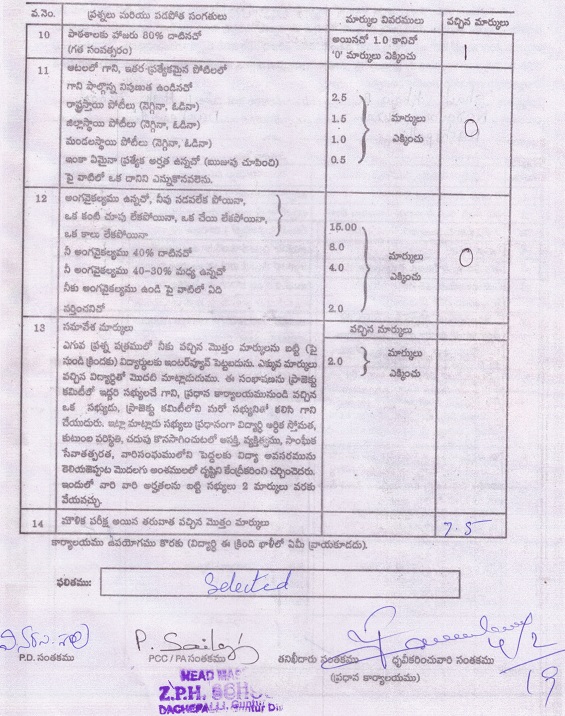 వ.నెం. ప్రశ్నలు మరియు పడపోత సంగతులు మార్కుల వివరములు వచ్చిన మార్కులు
10 పాఠశాలకు హాజరు 80% దాటినచో అయినచో 1.0 కానిచో 1
(గత సంవత్సరం) '0' మార్కులు ఎక్కించు
11 ఆటలలో గాని, ఇతర ప్రత్యేకమైన పోటిలలో
గాని పాల్గొన్న నిపుణత ఉండినచో
రాష్ట్రస్థాయి పోటీలు (నెగ్గినా, ఓడినా) 2.5
జిల్లాస్థాయి పోటీలు (నెగ్గినా, ఓడినా) 1.5 మార్కులు 0
మండలస్థాయి పోటీలు (నెగ్గినా, ఓడినా) 1.0 ఎక్కించు
ఇంకా ఏమైనా ప్రత్యేక అర్హత ఉన్నచో (ఋజువు చూపించి) 0.5
పై వాటిలో ఒక దానిని ఎన్నుకొనవలెను.
12 అంగవైకల్యము ఉన్నచో, నీవు నడవలేక పోయినా,
ఒక కంటి చూపు లేకపోయినా, ఒక చేయి లేకపోయినా,
ఒక కాలు లేకపోయినా 15.00
నీ అంగవైకల్యము 40% దాటినచో 8.0 మార్కులు 0
నీ అంగవైకల్యము 40-30% మధ్య ఉన్నచో 4.0 ఎక్కించు
నీకు అంగవైకల్యము ఉండి పై వాటిలో ఏది
వర్తించనిచో 2.0
13 సమావేశ మార్కులు వచ్చిన మార్కులు
ఎగువ ప్రశ్న పత్రములో నీకు వచ్చిన మొత్తం మార్కులను బట్టి (పై
నుండి క్రిందకు) విద్యార్థులకు ఇంటర్వ్యూవ్ పెట్టబడును. ఎక్కువ మార్కులు 2.0 మార్కులు
వచ్చిన విద్యార్థితో మొదటి మాట్లాడుదుము. ఈ సంభాషణను ప్రాజెక్టు ఎక్కించు
కమిటీలో ఇద్దరి సభ్యులచే గాని, ప్రధాన కార్యాలయమునుండి వచ్చిన
ఒక సభ్యుడు, ప్రాజెక్టు కమిటీలోని మరో సభ్యునితో కలిసి గాని
చేయుదురు. ఇట్లా మాట్లాడు సభ్యులు ప్రధానంగా విద్యార్థి ఆర్థిక స్తోమత,
కుటుంబ పరిస్థితి, చదువు కొనసాగించుటలో ఆసక్తి, వ్యక్తిత్వము, సాంఘిక
సేవాతత్పరత, వారిసంఘములోని పెద్దలకు విద్యా అవసరమును
తెలియజెప్పుట మొదలగు అంశములలో దృష్టిని కేంద్రీకరించి చర్చించెదరు.
ఇందులో వారి వారి అర్హతలను బట్టి సభ్యులు 2 మార్కులు వరకు
వేయవచ్చు.
14 మౌఖిక పరీక్ష అయిన తరువాత వచ్చిన మొత్తం మార్కులు 7.5
కార్యాలయము ఉపయోగము కొరకు (విద్యార్థి ఈ క్రింది ఖాళీలో ఏమీ వ్రాయకూడదు).
ఫలితము: Selected
P. Sailaj
P.D. సంతకము PCC / PA సంతకము తనిఖీదారు సంతకము ధృవీకరించువారి సంతకము
(ప్రధాన కార్యాలయము) 19
HEAD MAS
Z.P.H. SCHO
DACHEPALLI, Guntur Dis